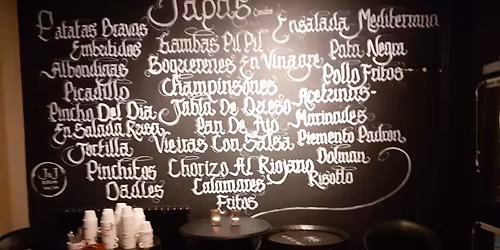 Tapas
Patatas Bravas
Embutidos
Albondigas
Picadillo
Pincho Del Dia
Ensalada Rusa
Tortilla
Pinchitos
Dadles
Gambas Pil Pil
Boquerenes En Vinagre
Champinsones
Tablat De Queso
Pan De Ajo
Vieiras Con Salsa
Chorizo Al Riojano
Calamares
Fritos
Ensalada Mediterrana
Pata Negra
Pollo Fritos
Aceizunas-
Marinades
Piemento Padron
Dolman
Risotto
J&J